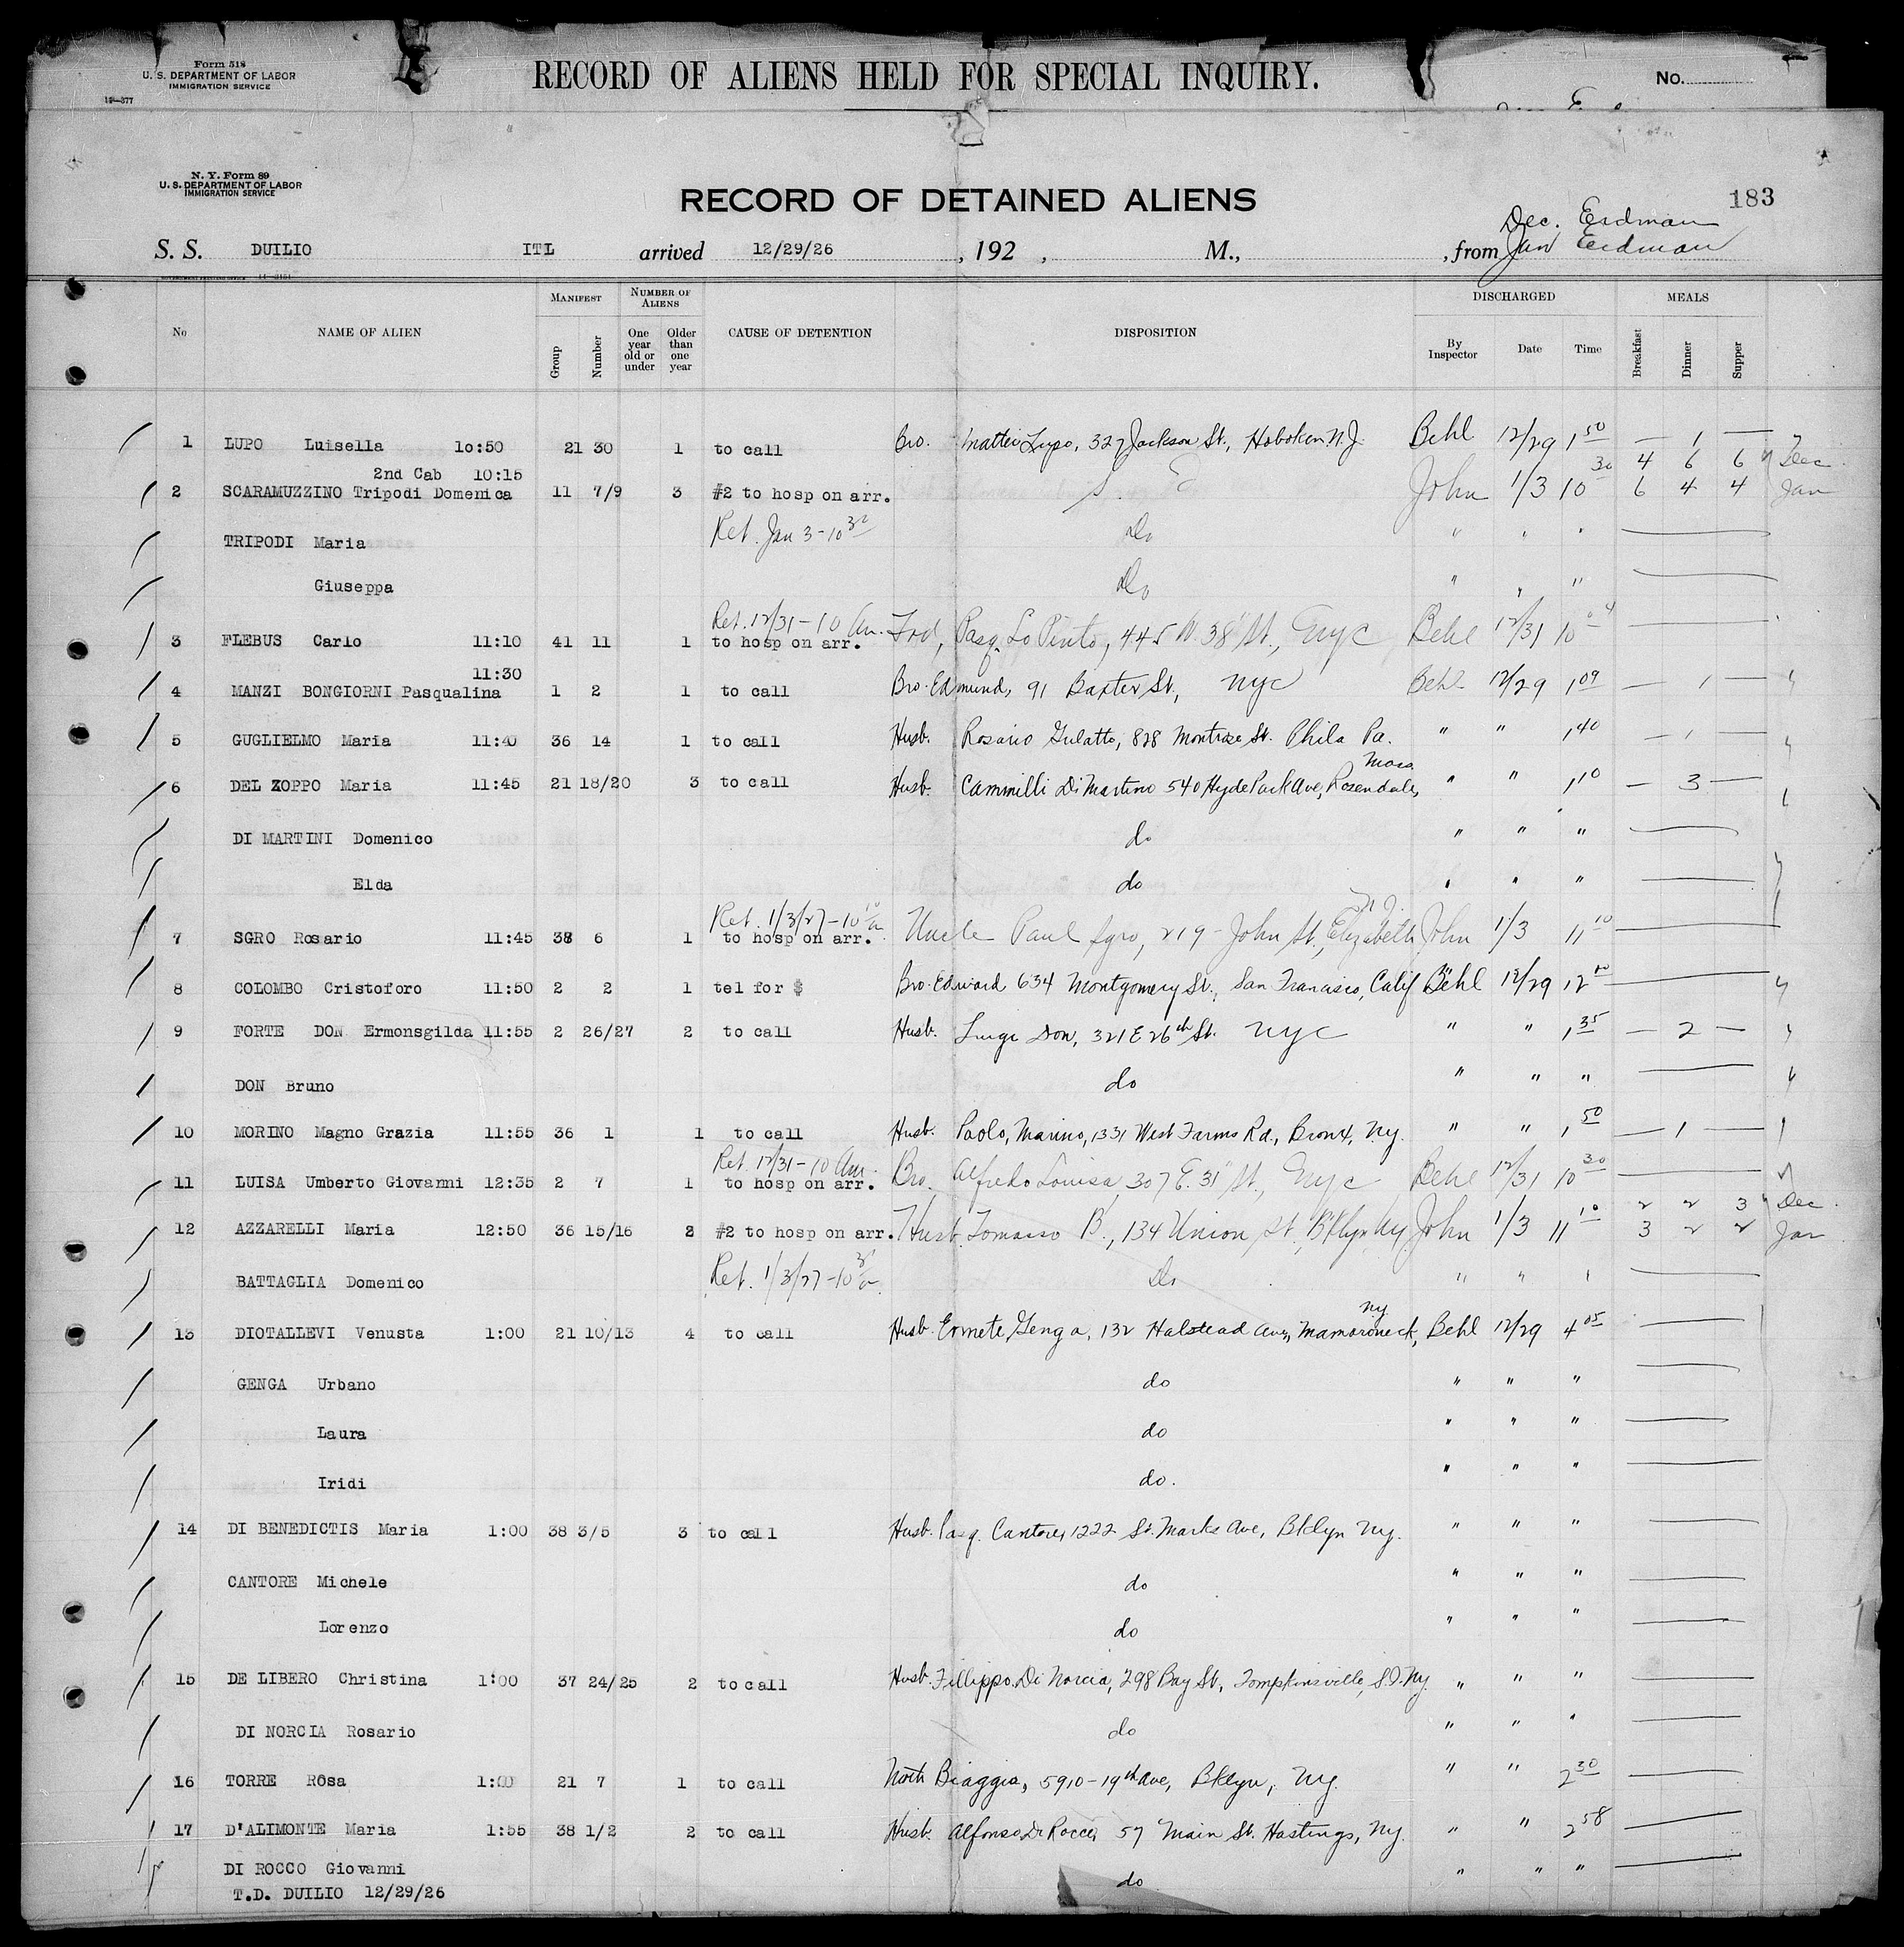 Form 518
U. S. DEPARTMENT OF LABOR
IMMIGRATION SERVICE
RECORD OF ALIENS HELD FOR SPECIAL INQUIRY.
No.
N. Y. Form 89
U. S. DEPARTMENT OF LABOR
IMMIGRATION SERVICE
RECORD OF DETAINED ALIENS
183
Dec. Erdman
S. S. DUILIO ITL arrived 12/29/26 , 192 , M., , from Jan Erdman
MANIFEST NUMBER OF ALIENS DISCHARGED MEALS
No NAME OF ALIEN Group Number One year old or under Older than one year CAUSE OF DETENTION DISPOSITION By Inspector Date Time Breakfast Dinner Supper
1 LUPO Luisella 10:50 21 30 1 to call Bro. Mattei Lupo, 327 Jackson St., Hoboken N.J. Behl 12/29 1 50 — 1 —
2nd Cab 10:15 4 6 6 Dec
2 SCARAMUZZINO Tripodi Domenica 11 7/9 3 #2 to hosp on arr. John 1/3 10 30 6 4 4 Jan
TRIPODI Maria Ret. Jan 3-10 30 Do " " "
Giuseppa Do " " "
Ret. 12/31-10 Am.
3 FLEBUS Carlo 11:10 41 11 1 to hosp on arr. Frd, Pasq. Lo Pinto, 445 W. 38" St., Nyc Behl 12/31 10
11:30
4 MANZI BONGIORNI Pasqualina 1 2 1 to call Bro. Edmund, 91 Baxter St., NYC Behl 12/29 1 09 — 1 —
5 GUGLIELMO Maria 11:40 36 14 1 to call Husb. Rosario Gulatto, 828 Montrose St. Phila Pa. " " 1 40 — 1 —
Mass.
6 DEL ZOPPO Maria 11:45 21 18/20 3 to call Husb. Cammilli Di Martino 540 Hyde Park Ave, Rosendale, " " 1 10 — 3 —
DI MARTINI Domenico do " " "
Elda do " " "
Ret. 1/3/27-10 N.J.
7 SGRO Rosario 11:45 38 6 1 to hosp on arr. Uncle Paul Sgro, 219-John St., Elizabeth John 1/3 11 10
8 COLOMBO Cristoforo 11:50 2 2 1 tel for $ Bro. Edward 634 Montgomery St., San Francisco, Calif Behl 12/29 12
9 FORTE DON Ermonsgilda 11:55 2 26/27 2 to call Husb. Luigi Don, 321 E 26th St. NYC " " 1 35 — 2 —
DON Bruno do " " "
10 MORINO Magno Grazia 11:55 36 1 1 to call Husb. Paolo, Marino, 1331 West Farms Rd., Bronx, Ny. " " 1 50 — 1 —
Ret. 12/31-10 Am.
11 LUISA Umberto Giovanni 12:35 2 7 1 to hosp on arr. Bro. Alfredo Louisa, 307 E. 31" St., Nyc Behl 12/31 10 30
2 2 3 Dec.
12 AZZARELLI Maria 12:50 36 15/16 2 #2 to hosp on arr. Husb. Tomasso B., 134 Union St., B'klyn Ny John 1/3 11 10 3 2 2 Jan
BATTAGLIA Domenico Ret. 1/3/27-10 Do " "
Ny.
13 DIOTALLEVI Venusta 1:00 21 10/13 4 to call Husb. Ermete Genga, 132 Halstead Ave, Mamaroneck, Behl 12/29 4 05
GENGA Urbano do " " "
Laura do " " "
Iridi do. " " "
14 DI BENEDICTIS Maria 1:00 38 3/5 3 to call Husb. Pasq. Cantore, 1222 St. Marks Ave, Bklyn Ny. " " "
CANTORE Michele do " " "
Lorenzo do " " "
15 DE LIBERO Christina 1:00 37 24/25 2 to call Husb. Fillippo Di Norcia, 298 Bay St, Tompkinsville, S.I. Ny. " " "
DI NORCIA Rosario do " " "
16 TORRE Rosa 1:00 21 7 1 to call Biaggia, 5910-19th Ave, Bklyn, Ny. " " 2 30
17 D'ALIMONTE Maria 1:55 38 1/2 2 to call Husb. Alfonso Di Rocco, 57 Main St. Hastings, Ny. " " 2 58
DI ROCCO Giovanni do " " "
T.D. DUILIO 12/29/26